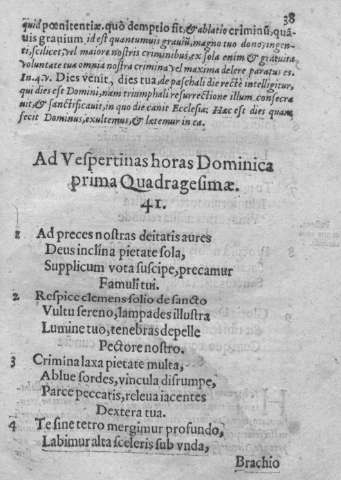 38
quid pœnitentiæ, quò demptio fit, & ablatio criminũ, quã-
uis grauium, id est quantumuis grauiũ, magno tuo dono, ingen-
ti, scilicet, vel maiore nostris criminibus, ex sola enim & gratuita
voluntate tua omnia nostra crimina vel maxima delere paratus es.
In. 4. v. Dies venit, dies tua, de paschali die rectè intelligitur,
qui dies est Domini, nam triumphali resurrectione illum consecra
uit, & sanctificauit, in quo die canit Ecclesia: Hæc est dies quam
fecit Dominus, exultemus, & lætemur in ea.
Ad Vespertinas horas Dominica
prima Quadragesimæ.
41.
1 Ad preces nostras deitatis aures
Deus inclina pietate sola,
Supplicum vota suscipe, precamur
Famuli tui.
2 Respice clemens solio de sancto
Vultu sereno, lampades illustra
Lumine tuo, tenebras depelle
Pectore nostro.
3 Crimina laxa pietate multa,
Ablue sordes, vincula disrumpe,
Parce peccatis, releua iacentes
Dextera tua.
4 Te sine tetro mergimur profundo,
Labimur alta sceleris sub vnda,
Brachio